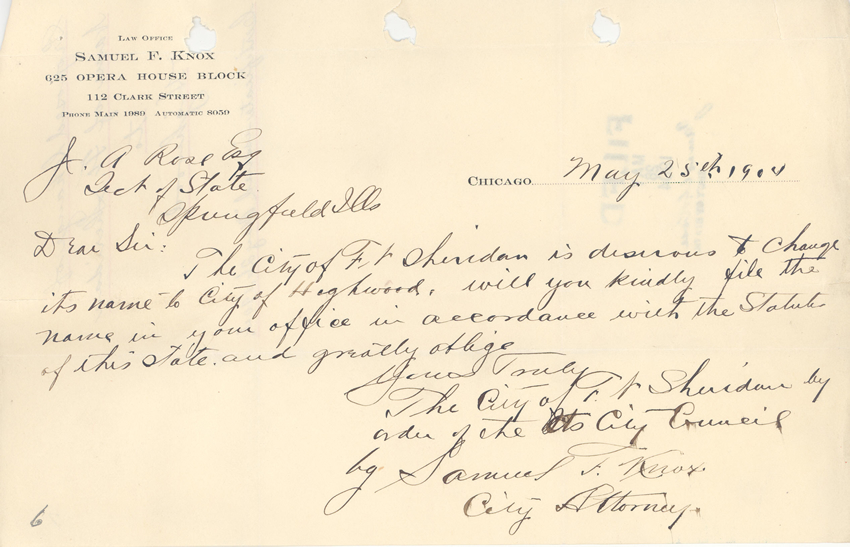 LAW OFFICE
SAMUEL F. KNOX
625 OPERA HOUSE BLOCK
112 CLARK STREET
PHONE MAIN 1989 AUTOMATIC 8059
J. A Rose Esq
Sect of State
Springfield Ills
CHICAGO May 25th 1904
Dear Sir:
The City of Ft Sheridan is desirous to change
its name to City of Highwood, will you kindly file the
name in your office in accordance with the Statute
of this State. and greatly oblige
Yours Truly
The City of Ft Sheridan by
order of the Its City Council
by Samuel F. Knox
City Attorney.
6
FILED